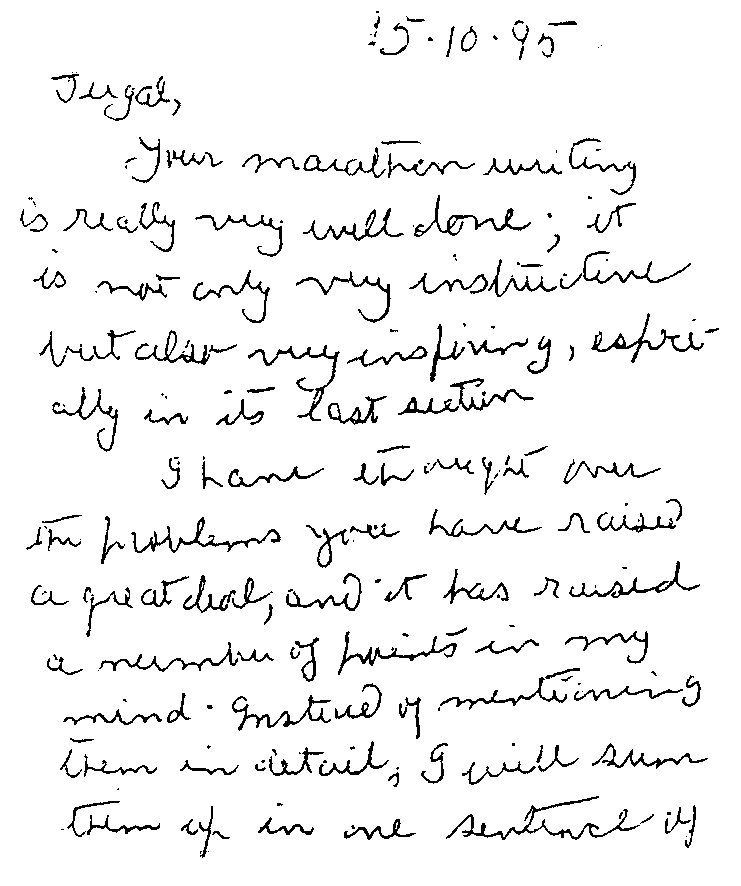 15.10.95
Jugal,
Your marathon writing
is really very well done; it
is not only very instructive
but also very inspiring, especi-
ally in its last section
I have thought over
the problems you have raised
a great deal, and it has raised
a number of points in my
mind. Instead of mentioning
them in detail, I will sum
them up in one sentence of